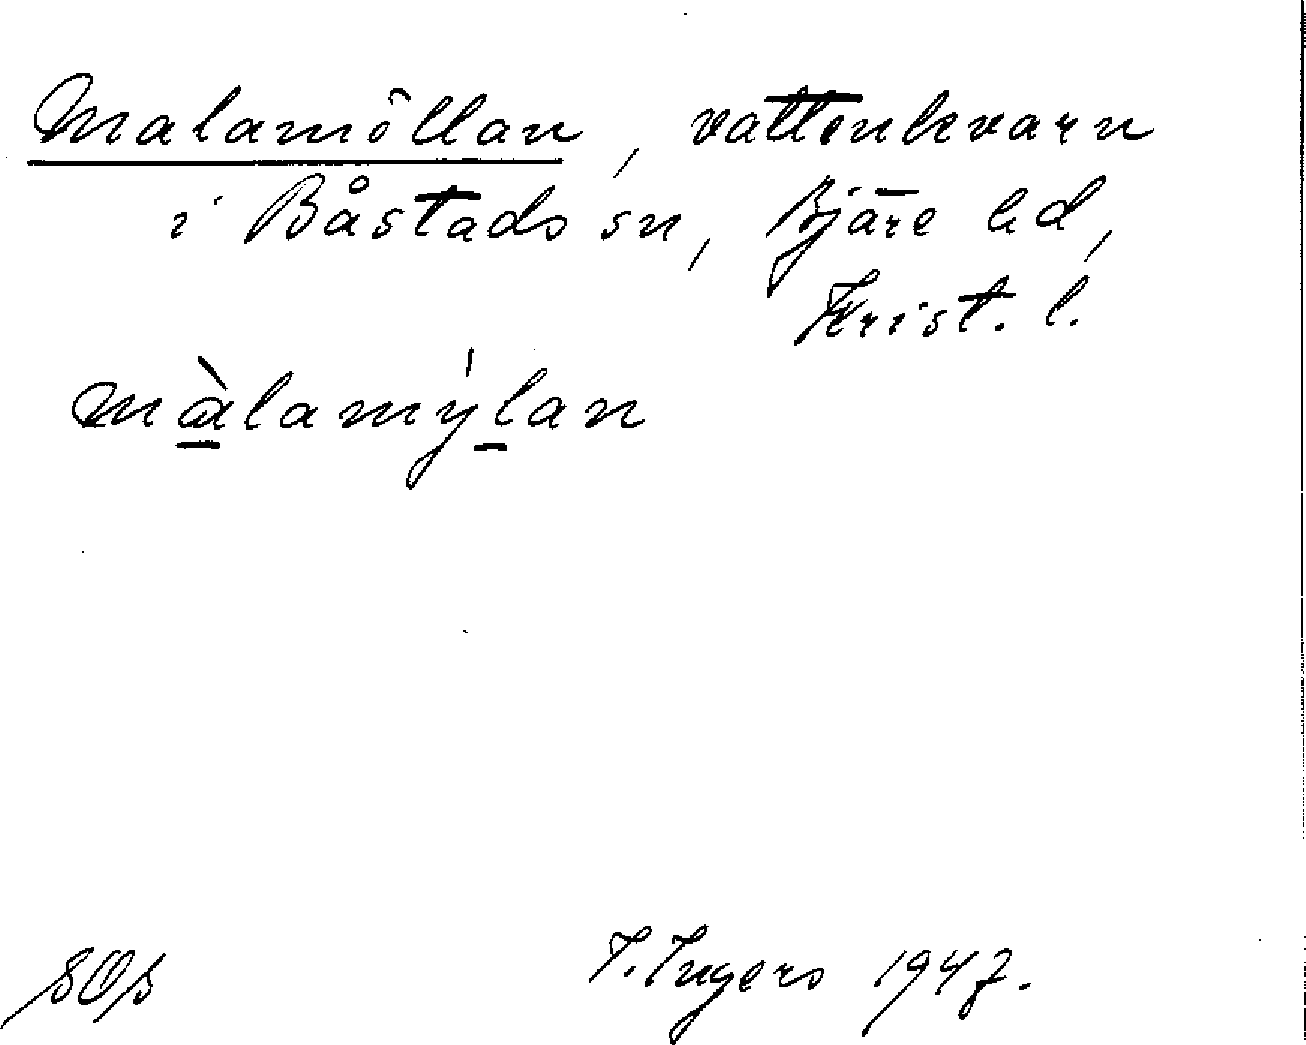 Malamöllan, vattenkvarn
i Båstads sn, Bjäre hd,
Krist. l.
màlamýlan
SOS
I. Ingers 1947.